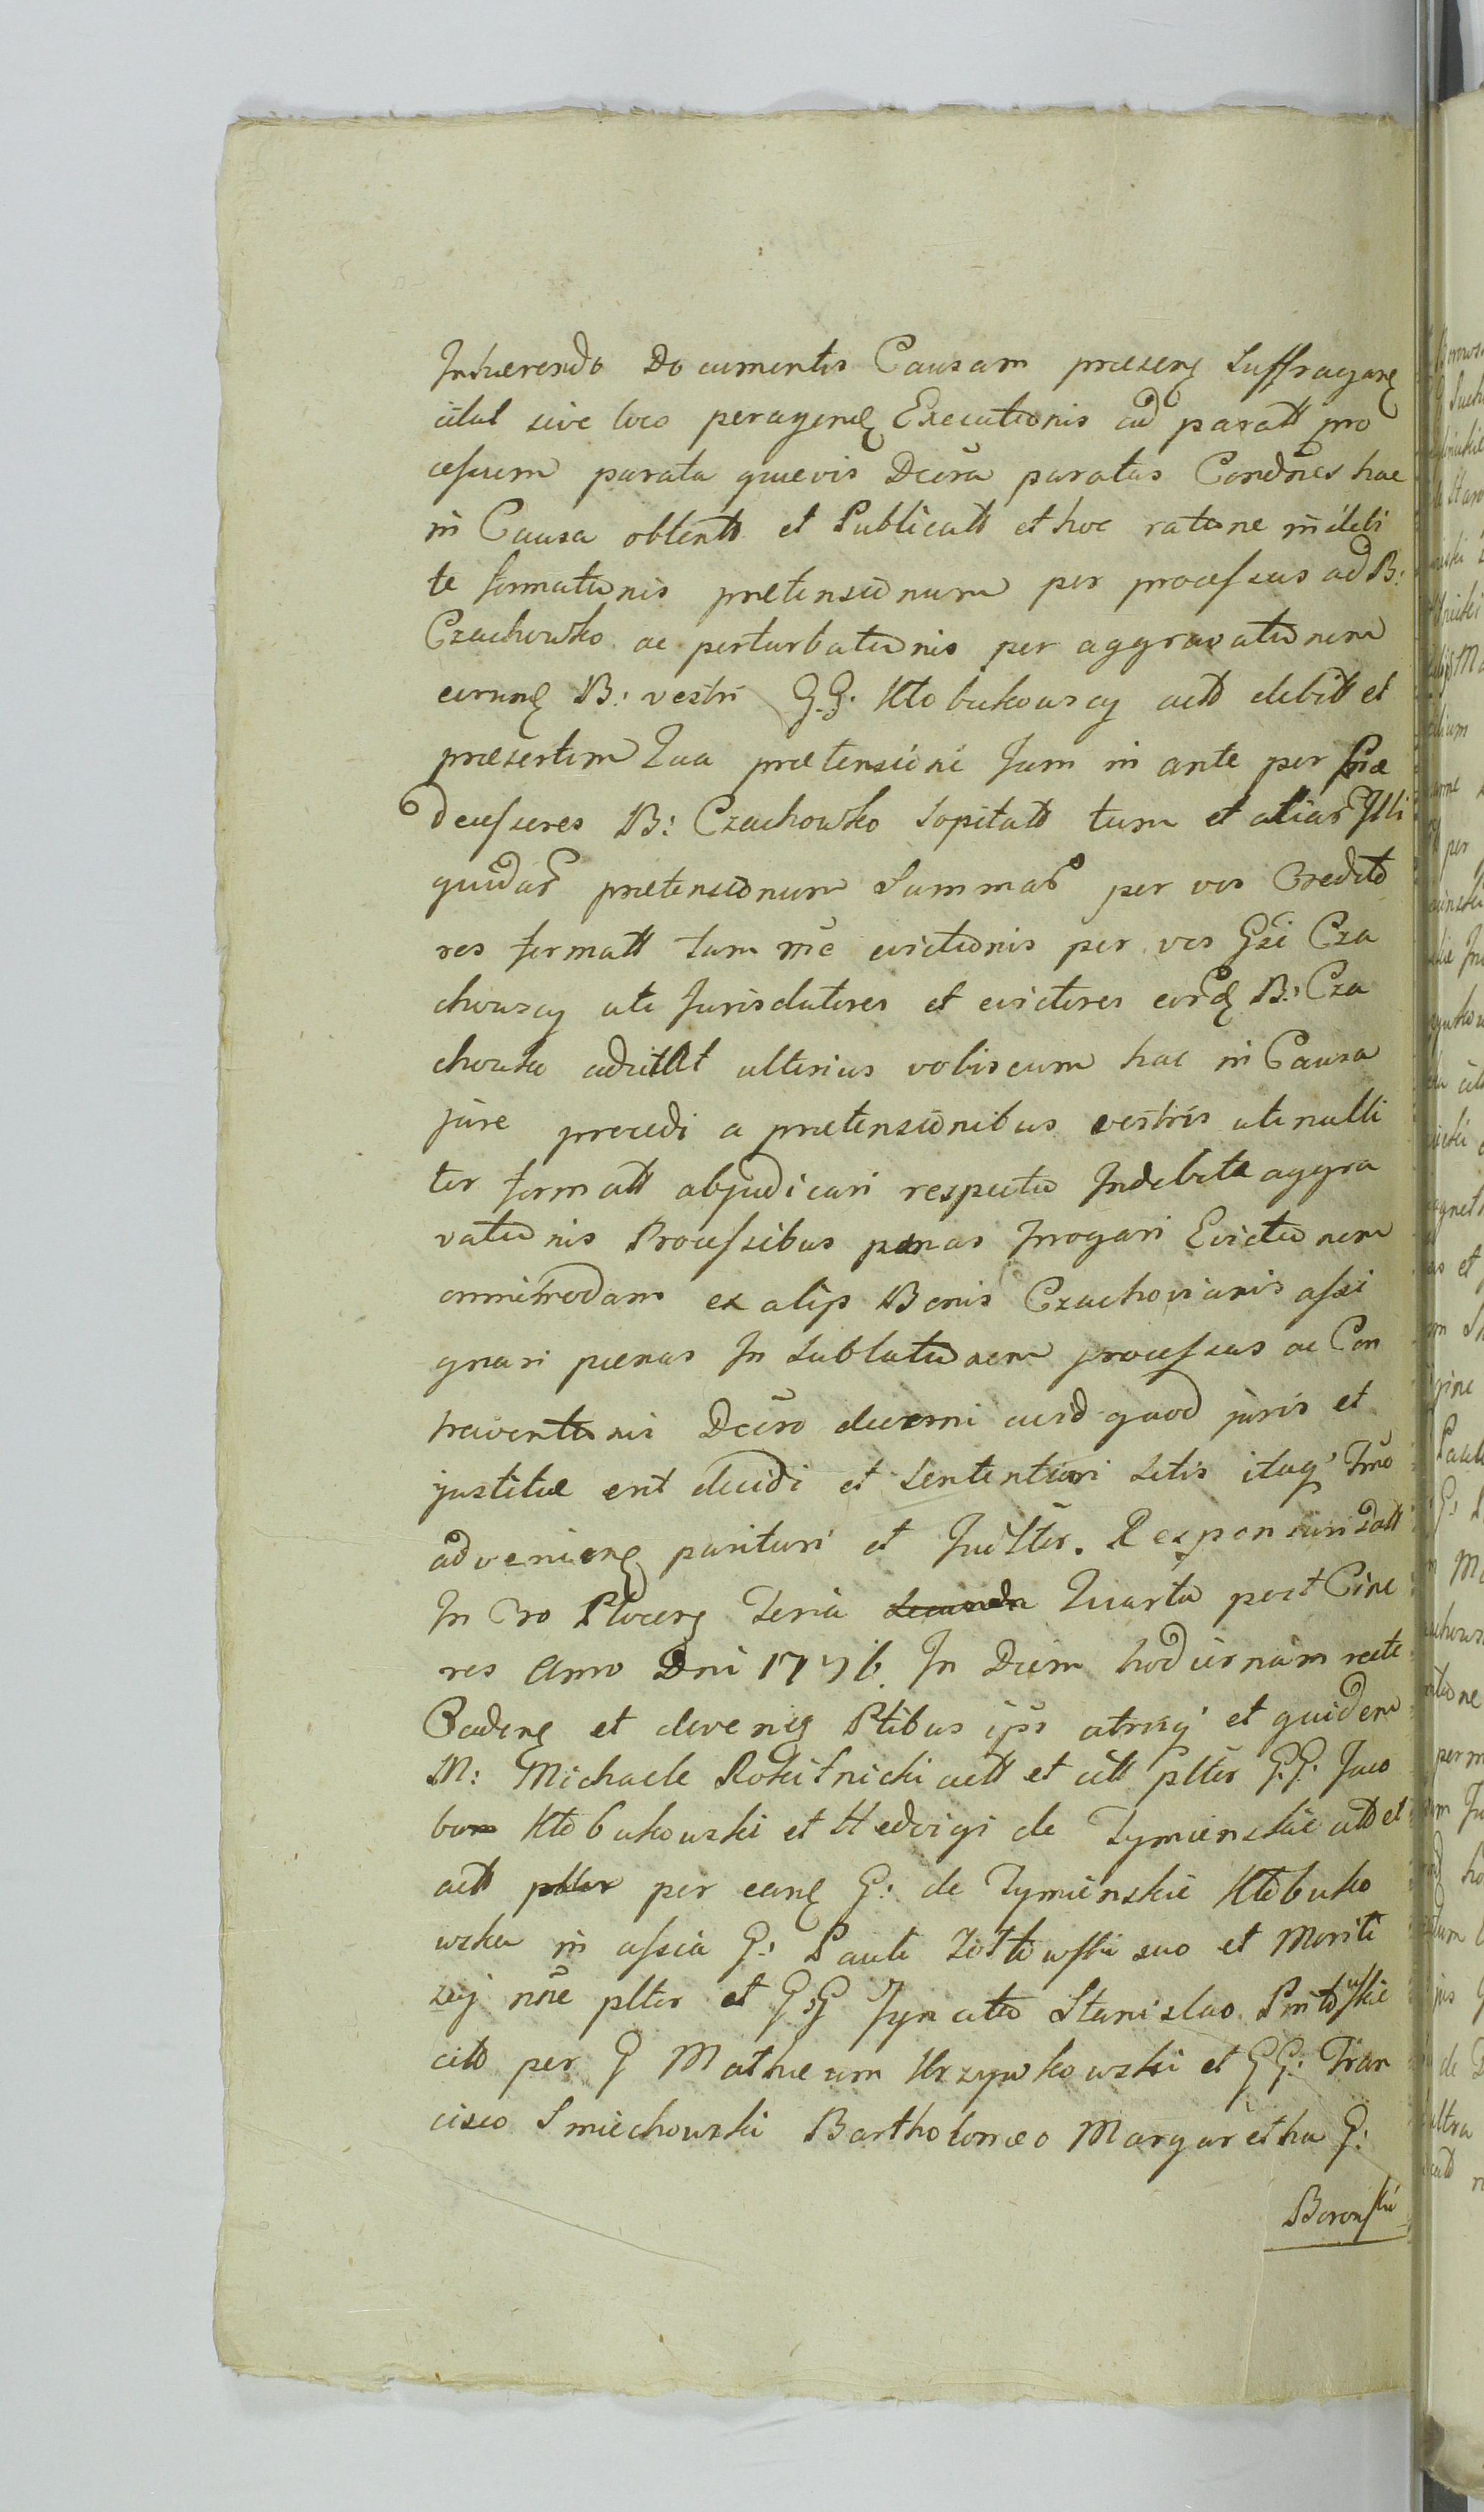 Inhaerendo Documentis Causam praesen Suffragan
idal sive loco peragend Executionis ad paratt pro
cessum parata quaevis Decra paratas Condnes hac
in Causa obtentt et Publicatt et hoc ratione indebi
te formationis praetensionum per processus ad B:
Czachowko ac perturbationis per aggravationem
eorund B: vestri G.G. Kłobukowscy actt debitt et
praesertim Qua praetensioni Jam in ante per Prae
decessores B: Czachowko Sopitatt tum et aliar Illi
quidar praetensionum Summar per vos Credito
res formatt tum nne evictionis per vos Gsi Cza
chowscy uti Jurisdatores et evictores eord B: Cza
chowko ulterius vobiscum hac in Causa
jure procedi a praetensionibus vestris uti nulli
ter formatt abjudicari respectu Indebitae aggra
vationis Processibus paenas Irrogari Evictionem
omnimodam ex alijs Bonis Czachovianis assi
gnari paenas In Sublationem processus ac Con
traventionis Decro decerni ac id quod juris et
justitiae erit decidi et Sententiari Sitis itaq Tmo
advenien parituri et Judltr. Responsuri Datt
In Cro Plocen Feria Secunda Quarta post Cine
res Anno Dni 1776. In Diem hodiernam recte
Caden et deven Ptibus ipis utrisq et quidem
M: Michaele Rokitnicki actt et citt pltr G.G. Jaco
bum Kłobukowski et Hedvigi de Tymienskie citt et
actt pltr per eand G: de Tymienskie Kłobuko
wska in assia G: Pauli Żółtowski suo et Mariti
sui nne pltr et G:G Ignatio Stanislao
citt per G Mathaeum Krzywkowski et G G: Fran
cisco Smiechowski Bartholomaeo Margaretha G:
Boronski